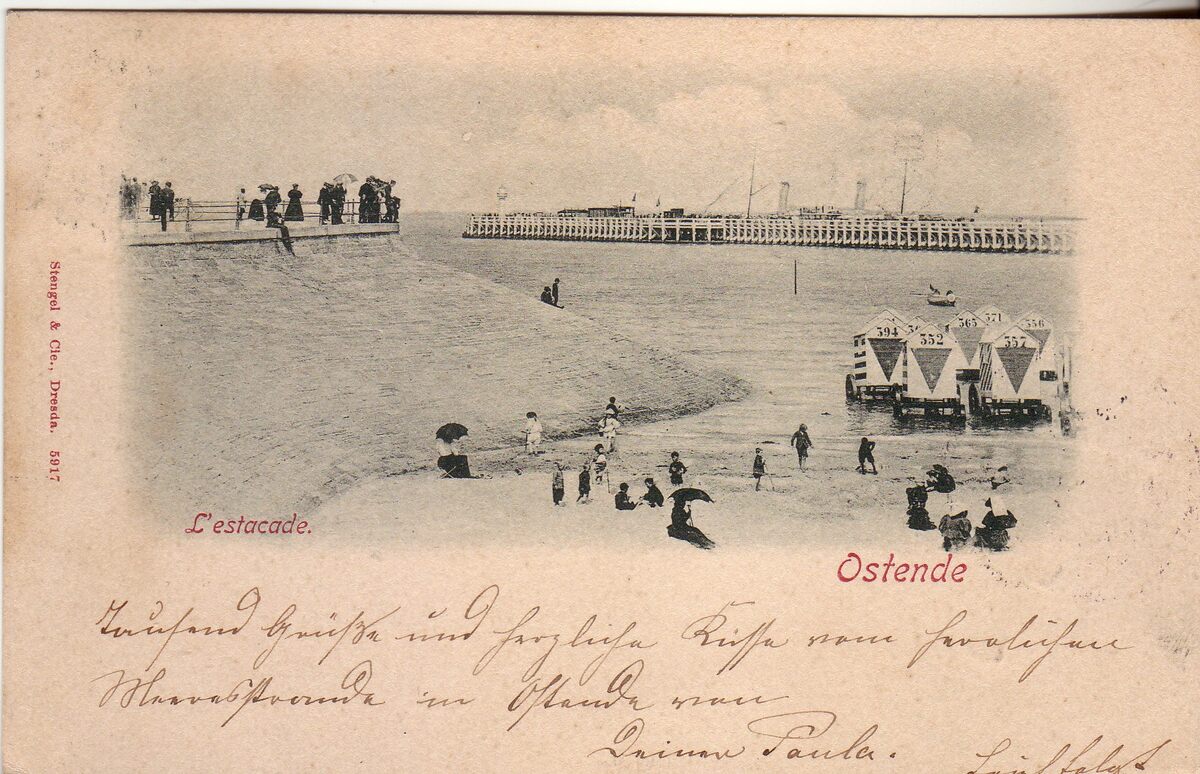 Stengel & Cie., Dresda. 5917
394
352
365
371
356
357
L'estacade.
Ostende
Tausend Grüße und herzliche Küsse vom herrlichen
Meeresstrande in Ostende von
Deiner Paula.
folgt